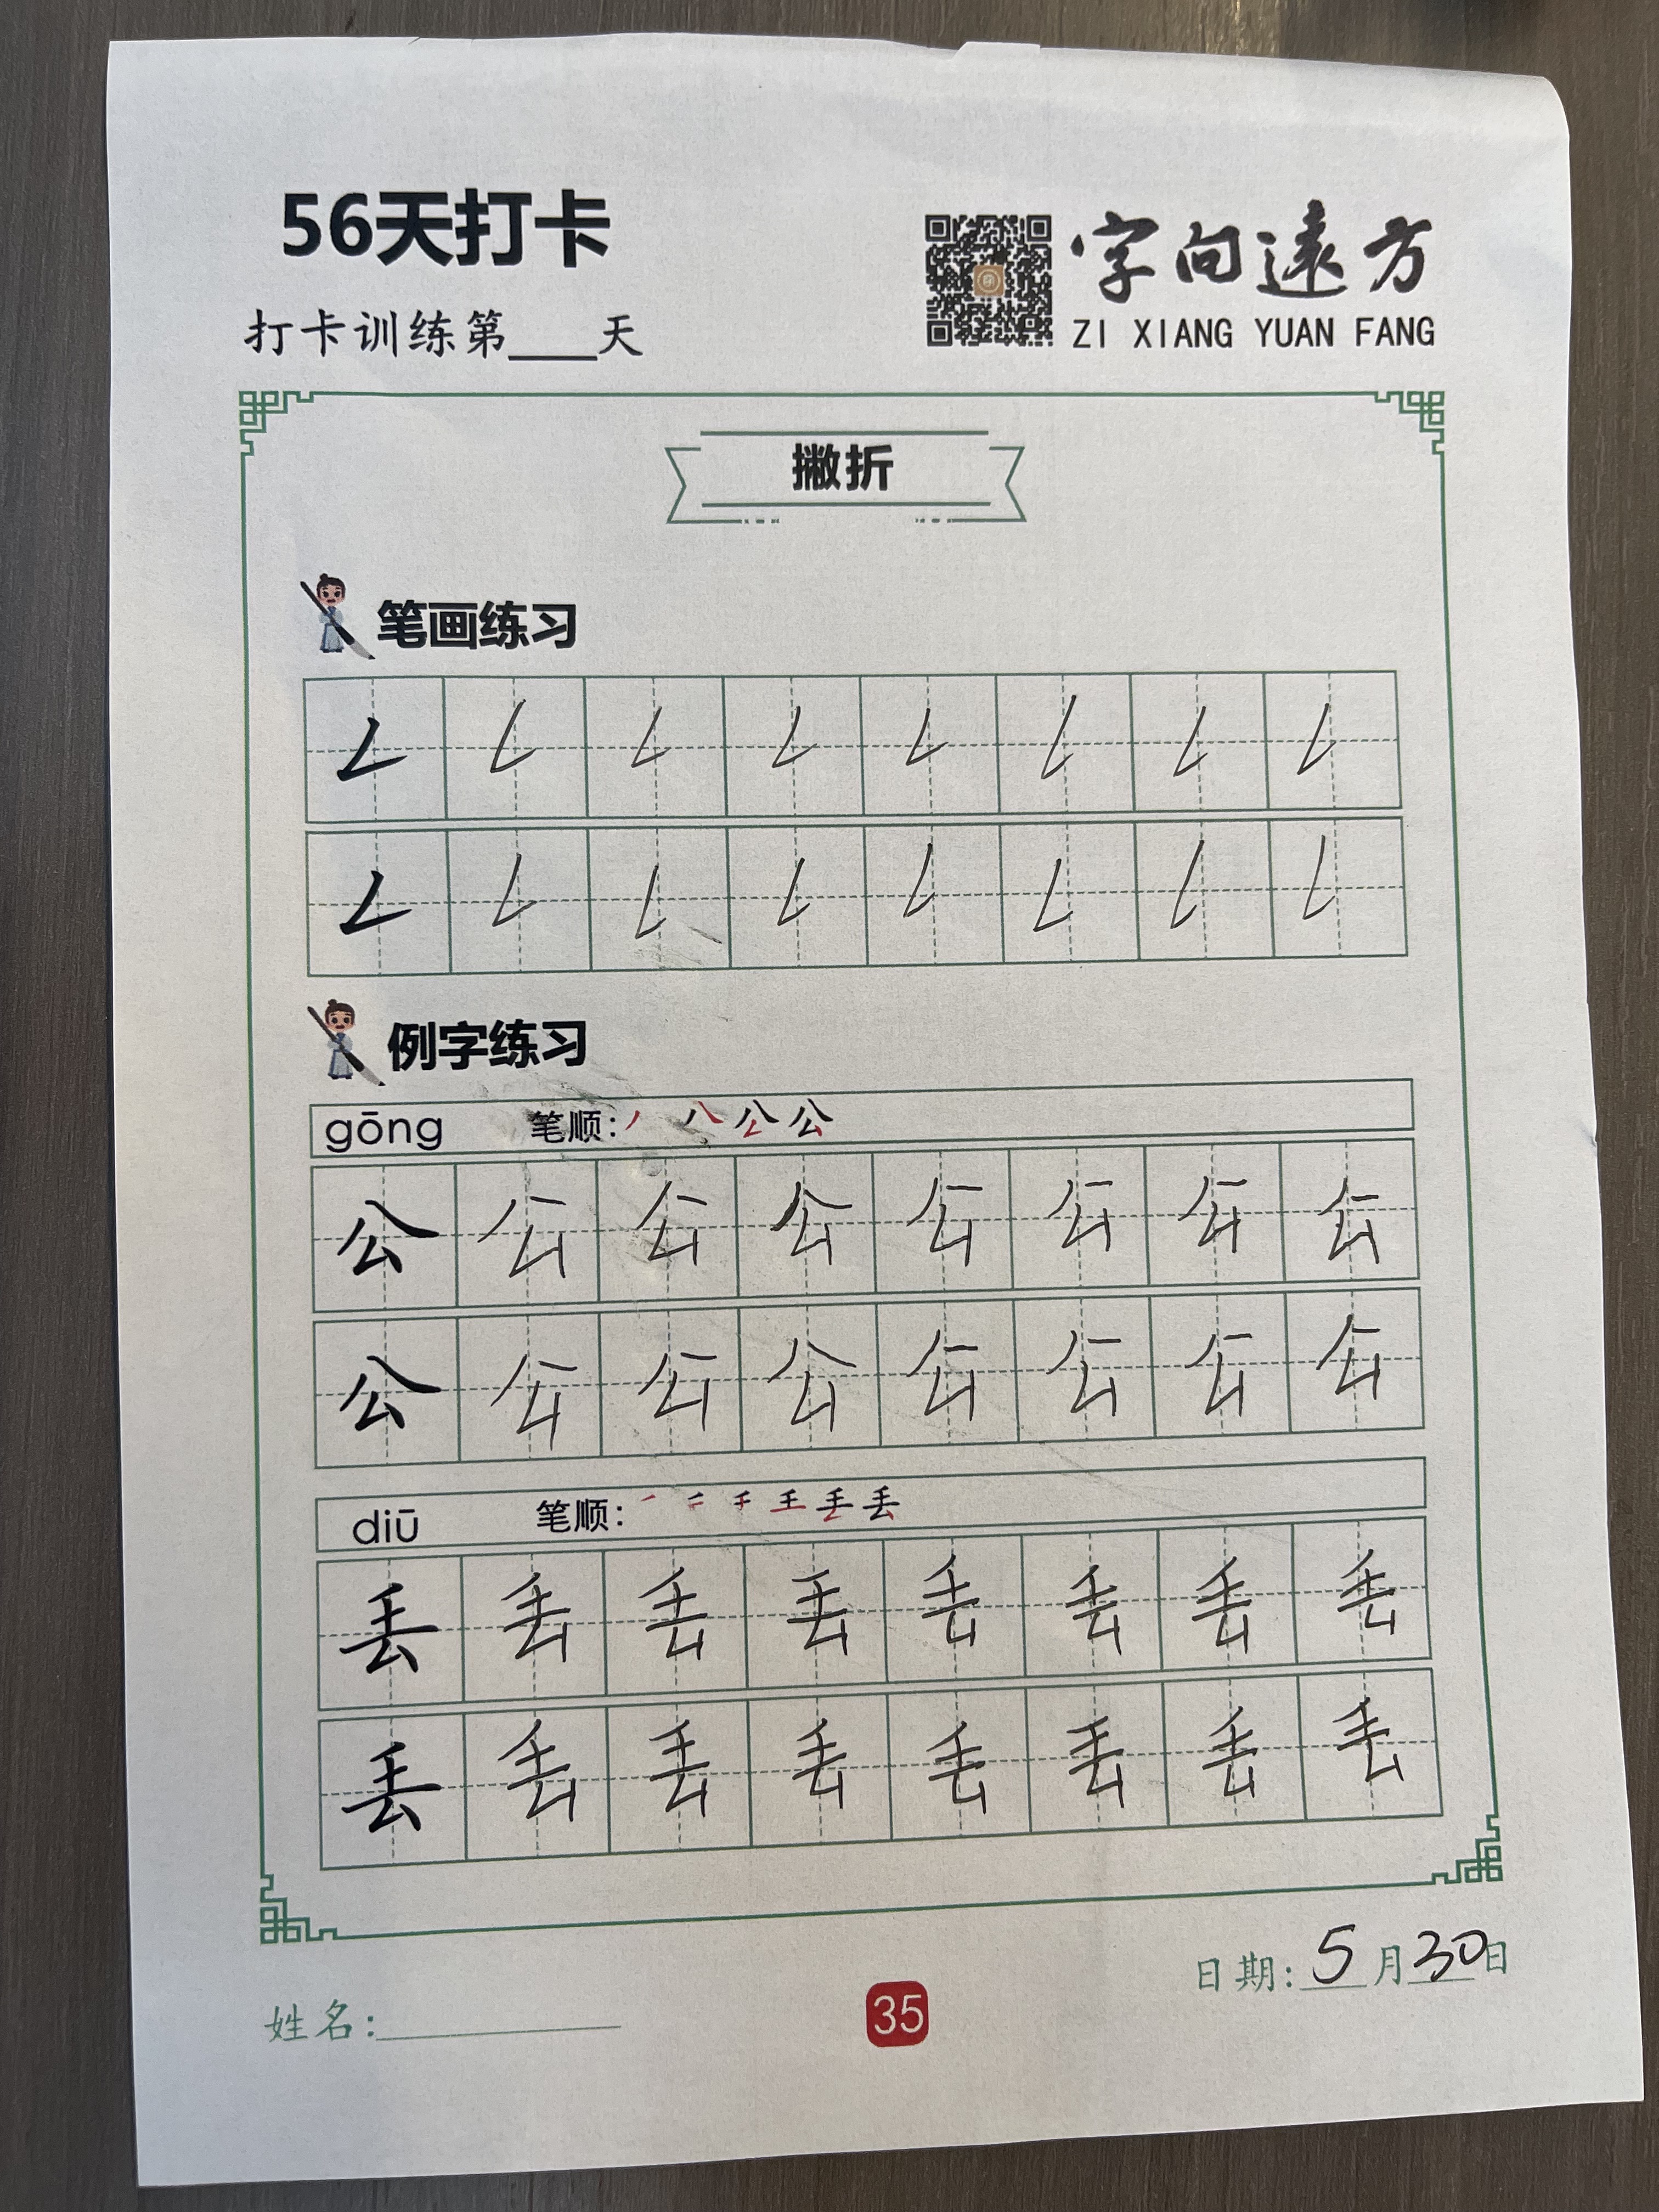 56天打卡
字向遠方
打卡训练第____天
ZI XIANG YUAN FANG
撇折
笔画练习
例字练习
gōng 笔顺: 公
公 公 公 公 公 公 公 公
公 公 公 公 公 公 公 公
diū 笔顺: 丢
丢 丢 丢 丢 丢 丢 丢 丢
丢 丢 丢 丢 丢 丢 丢 丢
日期: 5 月 30 日
姓名:
35